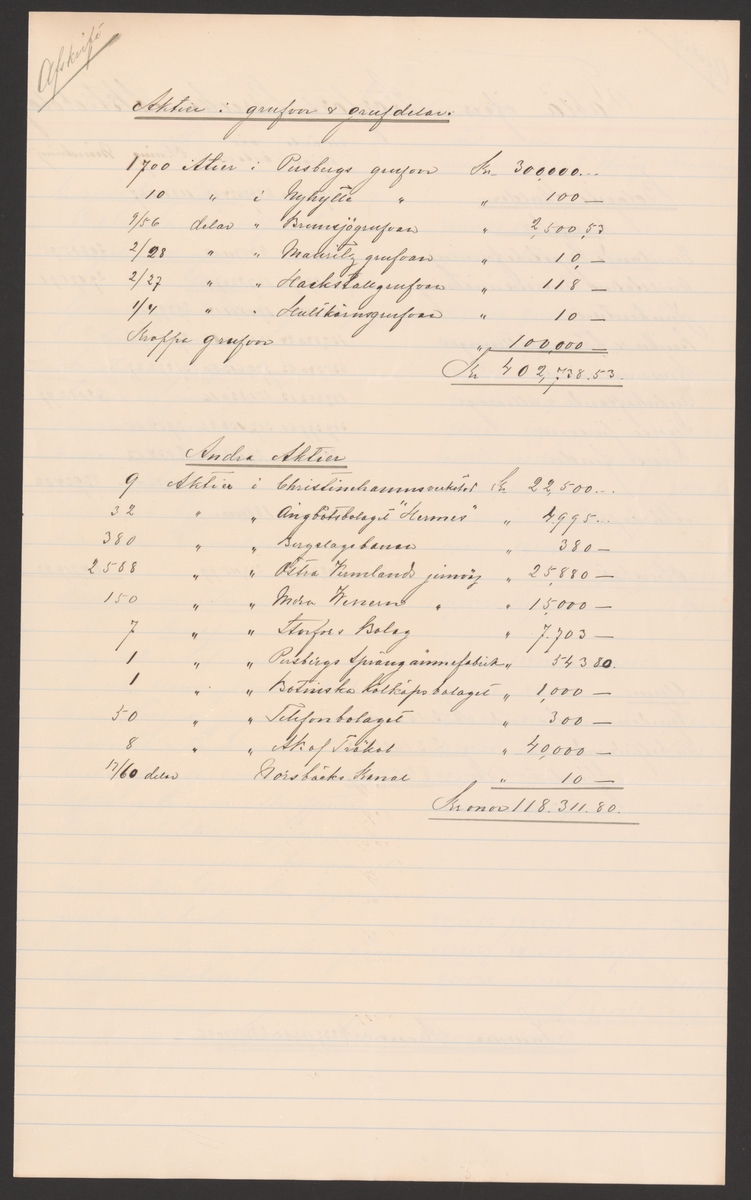 Afskrift
Aktier i grufvor & grufdelar.
1700 Aktier i Persbergs grufvor Kr 300,000...
10 " i Nyhytte " " 100 —
9/56 delar " Brunsjögrufvan " 2,500,53
2/28 " " Mauritz grufvan " 10 —
2/27 " " Hackstallegrufvan " 118 —
1/4 " " Hultkärnsgrufvan " 10 —
Kroppa grufvor " 100,000 —
Kr 402,738.53.
Andra Aktier
9 Aktier i Christinehamnsverkstad Kr 22,500...
32 " " Ångbotsbolaget "Hermes" " 4,995...
380 " " Bergslagsbanan " 380 —
2568 " " Östra Vermlands jernväg " 25,880 —
150 " " Wenern " " 15,000 —
7 " " Storfors Bolag " 7.703 —
1 " " Persbergs Sprängämnefabrik " 543 80.
1 " " Kolköpsbolaget " 1,000 —
50 " " Telefonbolaget " 300 —
8 " " Ak af Träkol " 40,000 —
17/60 delar Norsbäcks Kanal " 10 —
Kronor 118.311.80.